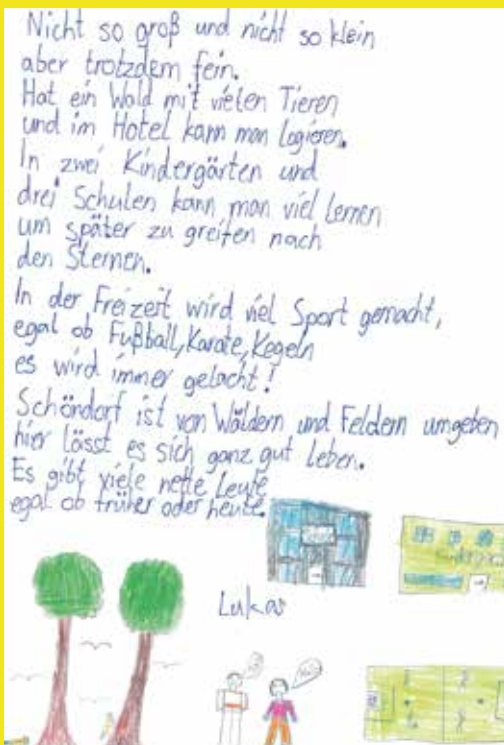 Nicht so groß und nicht so klein
aber trotzdem fein.
Hat ein Wald mit vielen Tieren
und im Hotel kann man logieren.
In zwei Kindergärten und
drei Schulen kann man viel lernen
um später zu greifen nach
den Sternen.
In der Freizeit wird viel Sport gemacht,
egal ob Fußball, Karate, Kegeln
es wird immer gelacht!
Schöndorf ist von Wäldern und Feldern umgeben
hier lässt es sich ganz gut leben.
Es gibt viele nette Leute
egal ob früher oder heute.
Lukas